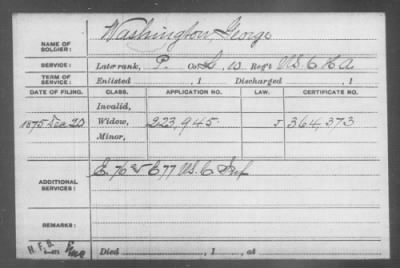 NAME OF SOLDIER: Washington, George
SERVICE: Late rank, P. Co. L, 10 Regt U.S.C.H.A.
TERM OF SERVICE: Enlisted , 1 Discharged , 1
DATE OF FILING. CLASS. APPLICATION NO. LAW. CERTIFICATE NO.
Invalid,
1875 Dec 20 Widow, 223,945 364,373
Minor,
ADDITIONAL SERVICES: E. 76 & E 77 U.S.C. Inf
REMARKS:
Died , 1 , at